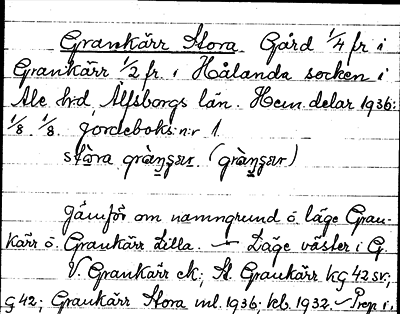 Grankärr Stora. Gård 1/4 fr i
Grankärr 1/2 fr. i Hålanda socken i
Ale hd, Älfsborgs län. Hem. delar 1936:
1/8. 1/8. Jordeboks:n:r 1.
stòra gràngar (gràngar)
Jämför om namngrund o. läge Gran-
kärr o. Grankärr Lilla. — Läge väster i G.
V. Grankärr ek; St. Grankärr kg 42 sv;
G 42; Grankärr Stora ml. 1936; kb. 1932. — Prep i,